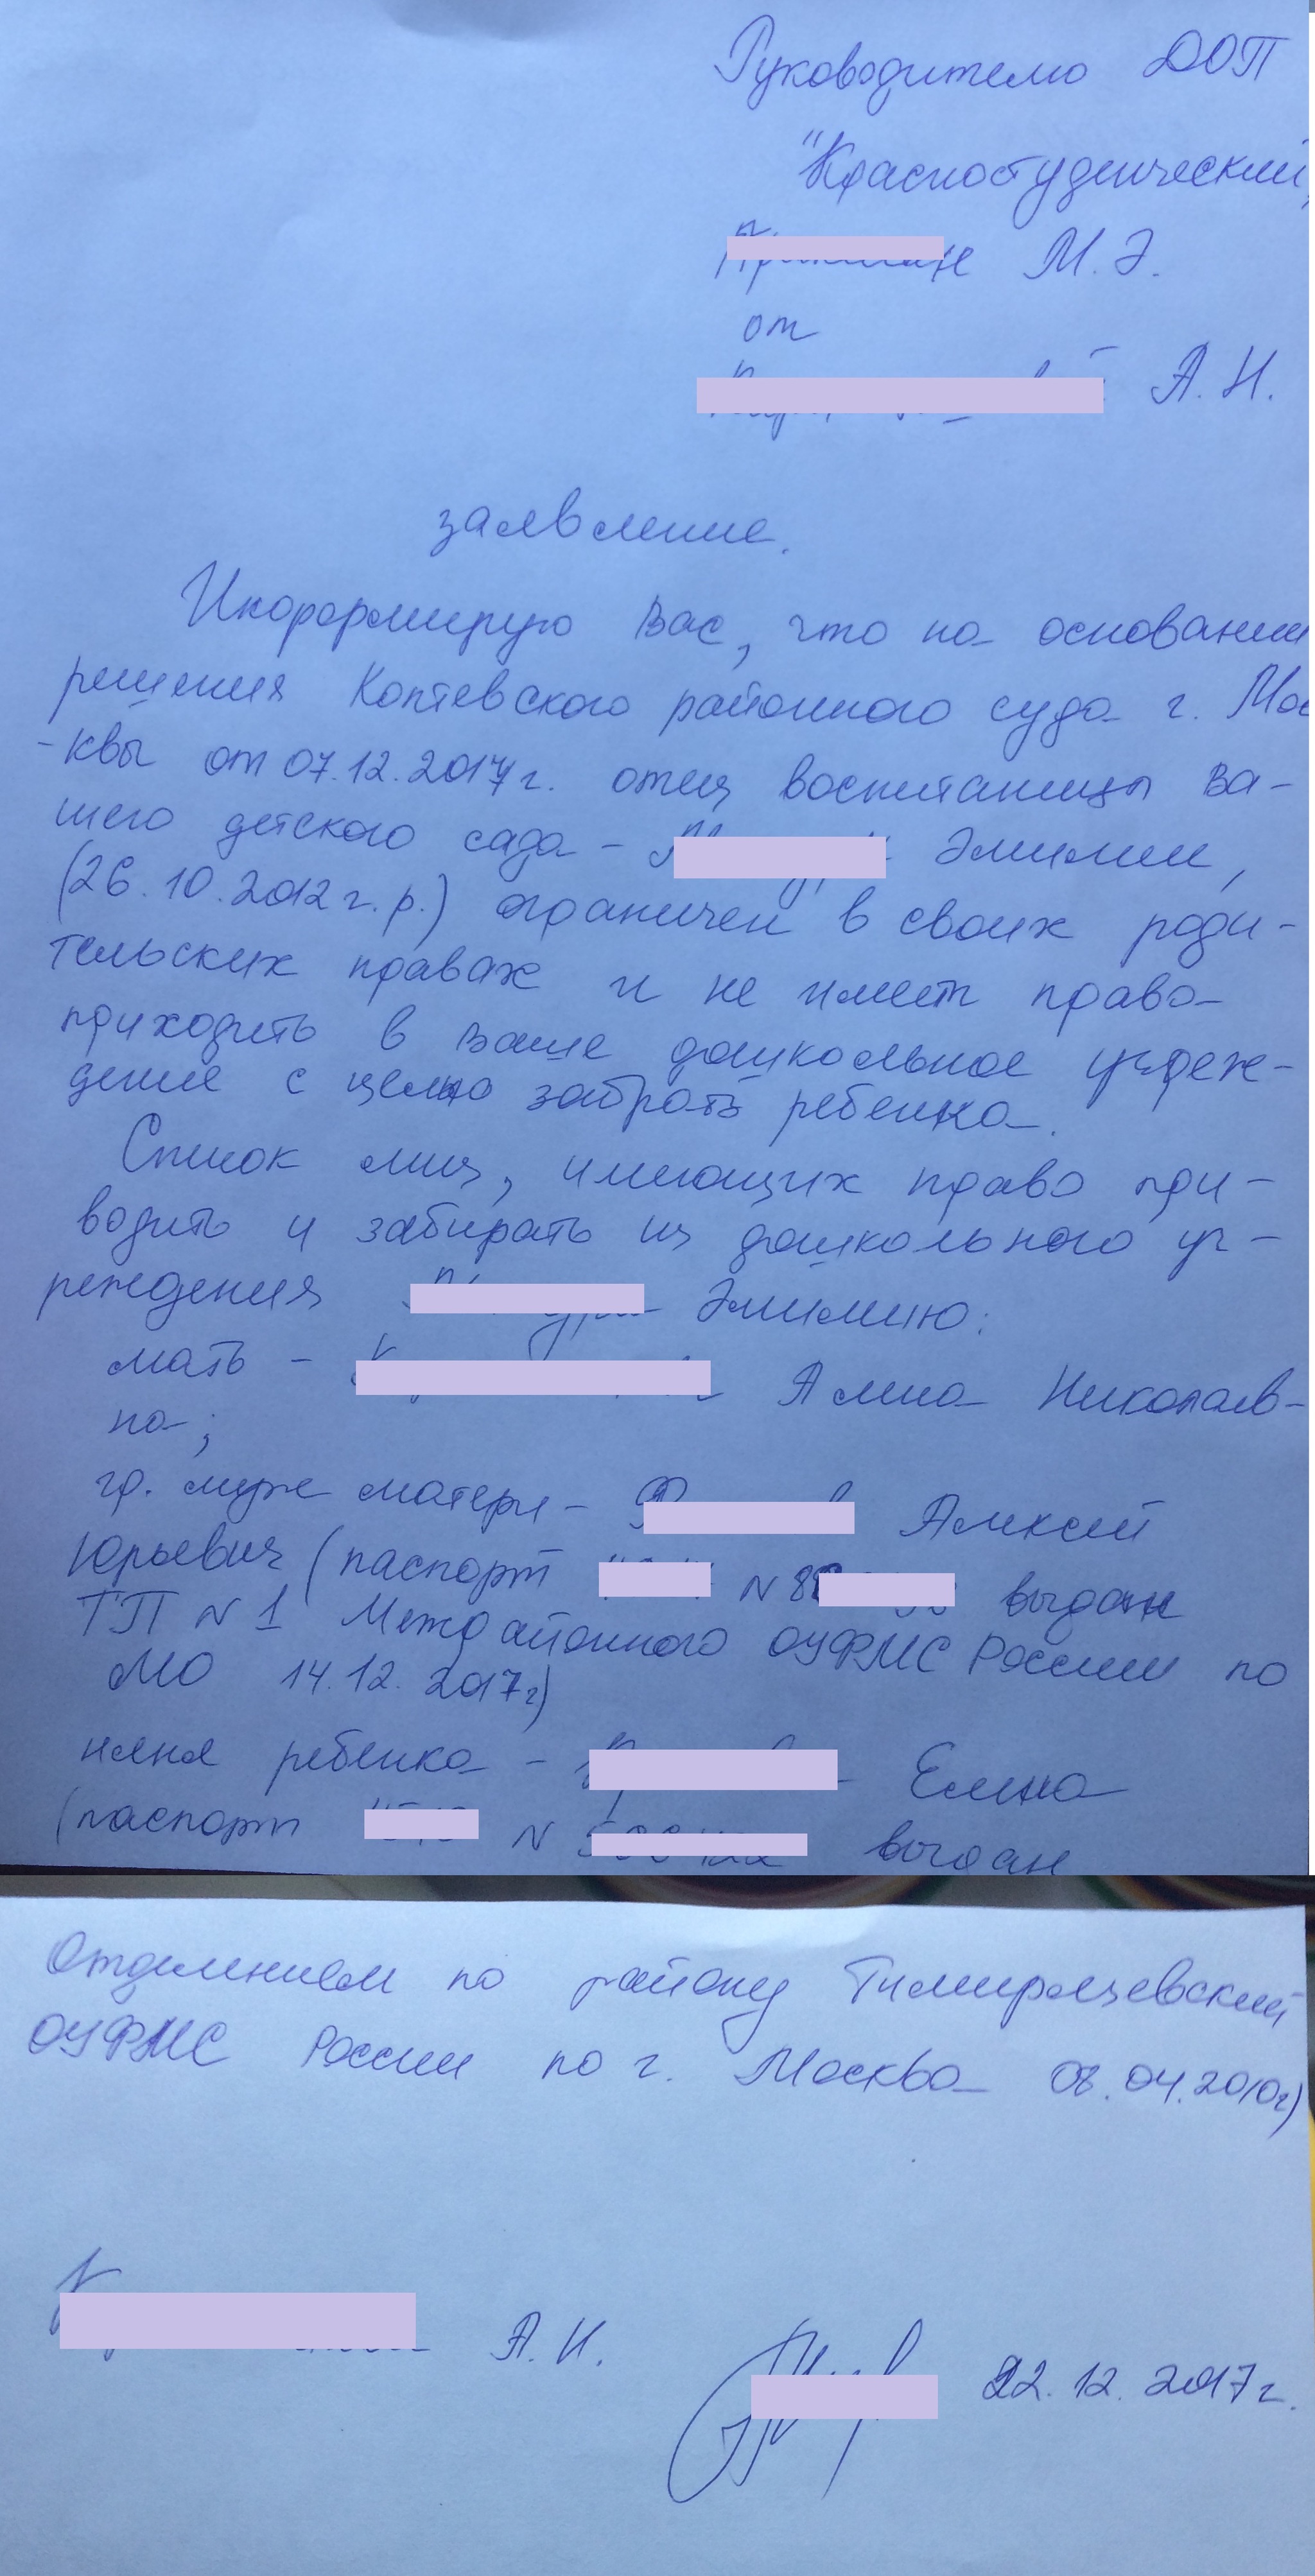 Руководителю ДОП
"Красностуденческий"
М.Э.
от
А.Н.
заявление.
Информирую Вас, что на основании
решения Коптевского районного суда г. Мос
-квы от 07.12.2017г. отец воспитаницы Ва-
шего детского сада - Эмилии,
(26.10.2012г.р.) ограничен в своих роди-
тельских правах и не имеет право
приходить в Ваше дошкольное учреж-
дение с целью забрать ребенка.
Список лиц, имеющих право при-
водить и забирать из дошкольного уч-
реждения Эмилию:
мать - Алина Николаев-
на;
гр. муж матери - Алексей
Юрьевич (паспорт N 88 выдан
ТП N 1 Межрайонного ОУФМС России по
МО 14.12.2017г)
няня ребенка - Елена
(паспорт N выдан
Отделением по району Тимирязевский
ОУФМС России по г. Москва 08.04.2010г)
А.Н.
22.12.2017г.